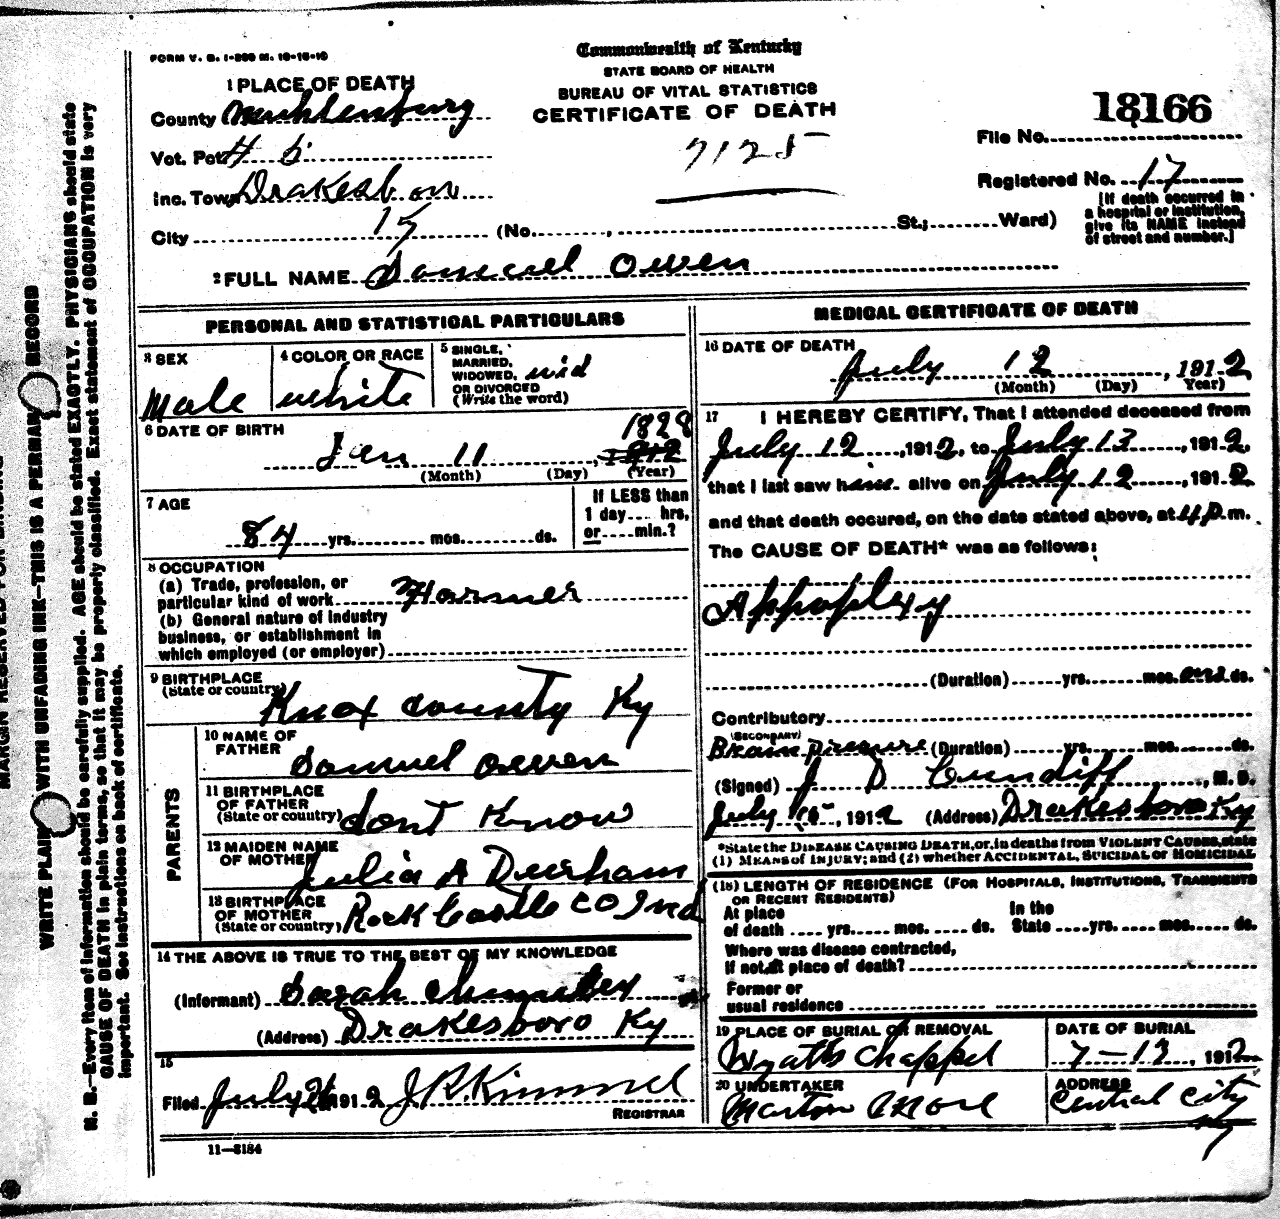 FORM V. S. 1-200 M. 10-15-10
Commonwealth of Kentucky
STATE BOARD OF HEALTH
BUREAU OF VITAL STATISTICS
CERTIFICATE OF DEATH
1 PLACE OF DEATH
County Muhlenburg
Vot. Pct # 5
Inc. Town Drakesboro
City 15 (No. , St.; Ward)
7125
File No. 18166
Registered No. 17
[If death occurred in
a hospital or institution,
give its NAME instead
of street and number.]
2 FULL NAME Samuel Owen
PERSONAL AND STATISTICAL PARTICULARS
3 SEX
Male
4 COLOR OR RACE
white
5 SINGLE,
MARRIED,
WIDOWED, wid
OR DIVORCED
(Write the word)
6 DATE OF BIRTH
1828
Jan 11 , 1912
(Month) (Day) (Year)
7 AGE
84 yrs. mos. ds.
If LESS than
1 day hrs.
or min.?
8 OCCUPATION
(a) Trade, profession, or
particular kind of work Farmer
(b) General nature of industry
business, or establishment in
which employed (or employer)
9 BIRTHPLACE
(State or country)
Knox County Ky
PARENTS
10 NAME OF
FATHER
Samuel Owen
11 BIRTHPLACE
OF FATHER
(State or country) dont Know
12 MAIDEN NAME
OF MOTHER
Julia A Durham
13 BIRTHPLACE
OF MOTHER
(State or country) Rock Castle CO Ind
14 THE ABOVE IS TRUE TO THE BEST OF MY KNOWLEDGE
(Informant) Sarah
(Address) Drakesboro Ky
15
Filed July 1912 J R Kimmel
REGISTRAR
11—3184
MEDICAL CERTIFICATE OF DEATH
16 DATE OF DEATH
July 12 , 1912
(Month) (Day) Year)
17 I HEREBY CERTIFY, That I attended deceased from
July 12 , 1912, to July 13 , 1912,
that I last saw him alive on July 12 , 1912
and that death occured, on the date stated above, at 4 P. m.
The CAUSE OF DEATH* was as follows:
Appoplexy
(Duration) yrs. mos. one ds.
Contributory
(SECONDARY)
Brain Pressure (Duration) yrs. mos. ds.
(Signed) J D Cundiff , M. D.
July 15 , 1912 (Address) Drakesboro Ky
*State the DISEASE CAUSING DEATH, or, in deaths from VIOLENT CAUSES, state
(1) MEANS of INJURY; and (2) whether ACCIDENTAL, SUICIDAL or HOMICIDAL
(18) LENGTH OF RESIDENCE (FOR HOSPITALS, INSTITUTIONS, TRANSIENTS
OR RECENT RESIDENTS)
At place
of death yrs. mos. ds.
In the
State yrs. mos. ds.
Where was disease contracted,
If not at place of death?
Former or
usual residence
19 PLACE OF BURIAL OR REMOVAL
Wyatts Chappel
DATE OF BURIAL
7 – 13 , 1912
20 UNDERTAKER
Marton Moore
ADDRESS
Central City
Ky
MARGIN RESERVED FOR BINDING
WRITE PLAINLY WITH UNFADING INK—THIS IS A PERMANENT RECORD
N. B.—Every item of information should be carefully supplied. AGE should be stated EXACTLY. PHYSICIANS should state
CAUSE OF DEATH in plain terms, so that it may be properly classified. Exact statement of OCCUPATION is very
important. See instructions on back of certificate.